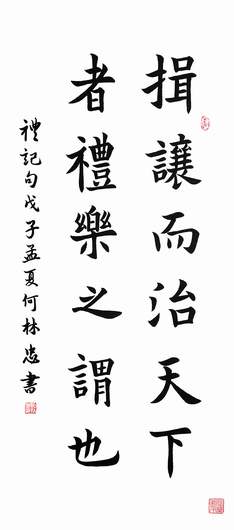 揖讓而治天下
者禮樂之謂也
禮記句戊子孟夏何林忠書